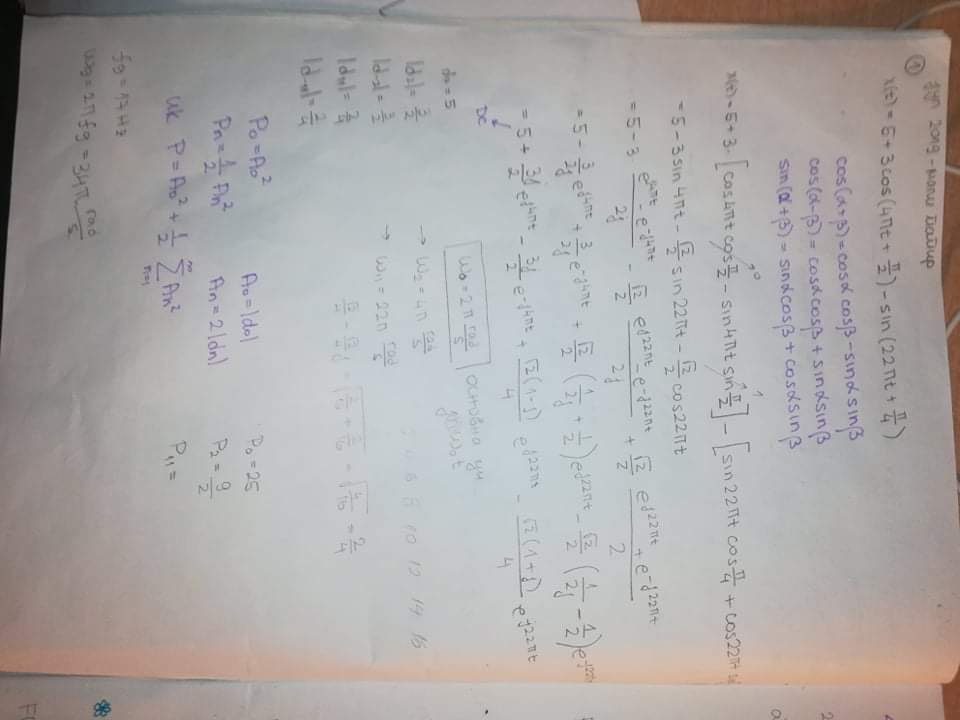 ① јун 2019 - мали бајир
x(t) = 5 + 3cos(4πt + π/2) - sin(22πt + π/4)
cos(α+β) = cosα cosβ - sinα sinβ
cos(α-β) = cosα cosβ + sinα sinβ
sin(α+β) = sinα cosβ + cosα sinβ
x(t) = 5 + 3·[cos4πt cos π/2 →0 - sin4πt sin π/2 →1] - [sin22πt cos π/4 + cos22πt
= 5 - 3sin4πt - √2/2 sin22πt - √2/2 cos22πt
= 5 - 3 (e^j4πt - e^-j4πt)/2j - √2/2 (e^j22πt - e^-j22πt)/2j + √2/2 (e^j22πt + e^-j22πt)/2
= 5 - 3/2j e^j4πt + 3/2j e^-j4πt + √2/2 (1/2j + 1/2) e^j22πt - √2/2 (1/2j - 1/2) e^-j22πt
= 5 + 3j/2 e^j4πt - 3j/2 e^-j4πt + √2(1-j)/4 e^j22πt - √2(1+j)/4 e^-j22πt
DC
d0 = 5
ω0 = 2π rad/s
основна уч.
|d2| = 3/2 → ω2 = 4π rad/s
|d-2| = 3/2 → ω11 = 22π rad/s
|d11| = 2/4
√2/4 - √2/4 j = √(2/16 + 2/16) = √(4/16) = 2/4
|d-11| = 2/4
8 10 12 14 16
P0 = A0² A0 = |d0| P0 = 25
Pn = 1/2 An² An = 2|dn| P2 = 9/2
uk P = A0² + 1/2 ∑ n=1 ∞ An² P11 =
fg = 17Hz
ωg = 2πfg = 34π rad/s